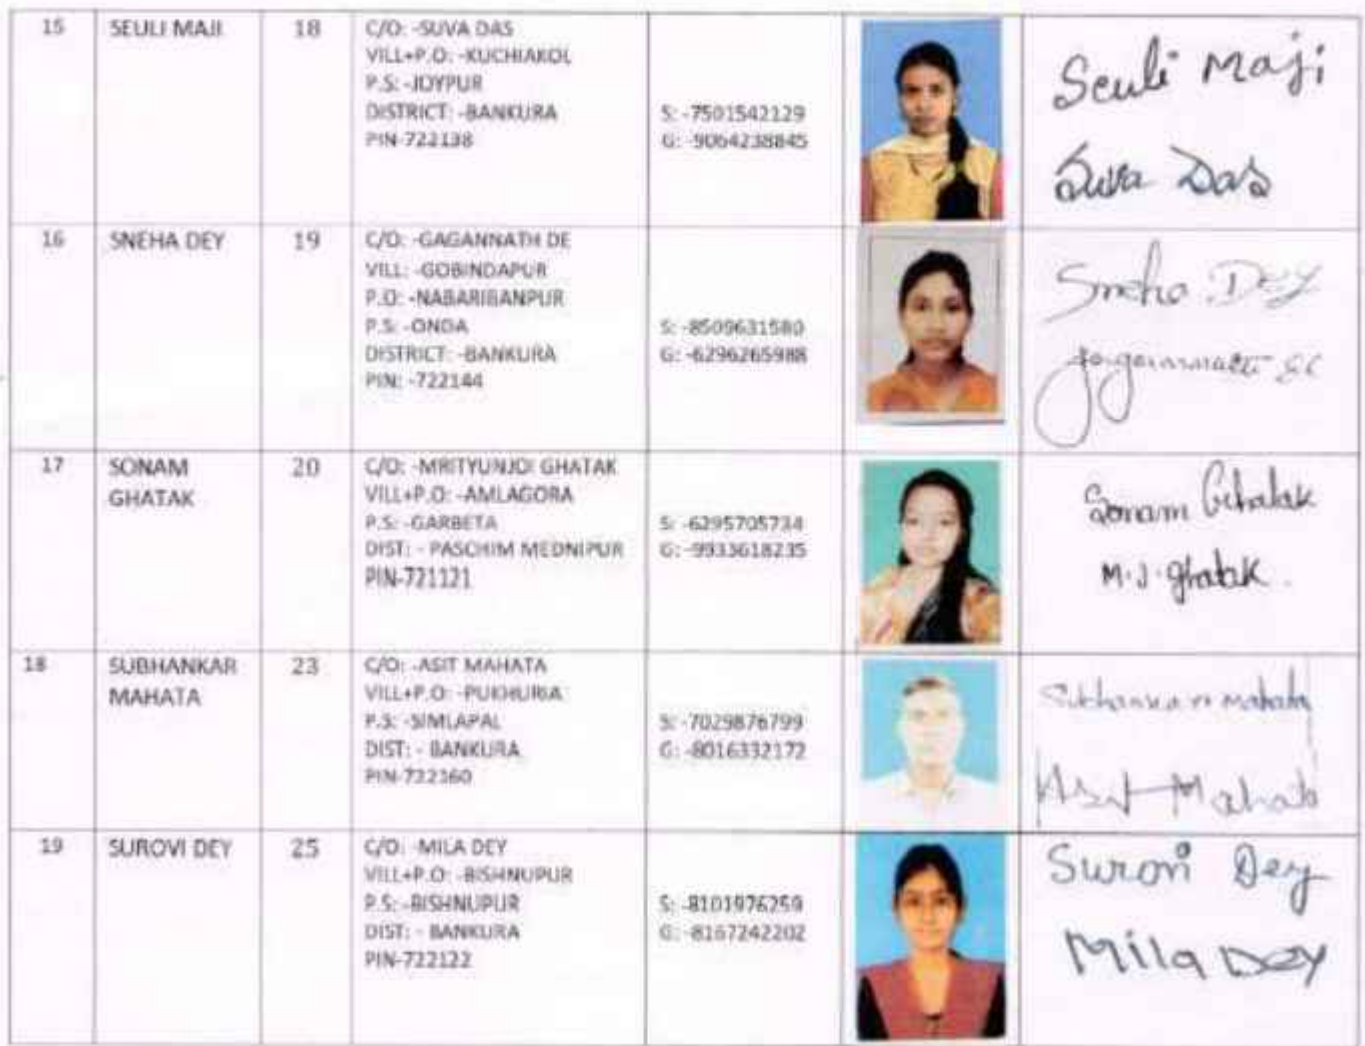 15
SEULI MAJI
18
C/O: -SUVA DAS
VILL+P.O: -KUCHIAKOL
P.S: -JOYPUR
DISTRICT: -BANKURA
PIN-722138
S: -7501542129
G: -9064238845
Seuli Maji
Suva Das
16
SNEHA DEY
19
C/O: -GAGANNATH DE
VILL: -GOBINDAPUR
P.O: -NABARIBANPUR
P.S: -ONDA
DISTRICT: -BANKURA
PIN: -722144
S: -8509631580
G: -6296265988
Sneha Dey
17
SONAM
GHATAK
20
C/O: -MRITYUNJOI GHATAK
VILL+P.O: -AMLAGORA
P.S: -GARBETA
DIST: - PASCHIM MEDNIPUR
PIN-721121
S: -6295705734
G: -9933618235
Sonam Ghatak
M.J. Ghatak.
18
SUBHANKAR
MAHATA
23
C/O: -ASIT MAHATA
VILL+P.O: -PUKHURIA
P.S: -SIMLAPAL
DIST: - BANKURA
PIN-722160
S: -7029876799
G: -8016332172
Subhankar mahata
Asit Mahata
19
SUROVI DEY
25
C/O: -MILA DEY
VILL+P.O: -BISHNUPUR
P.S: -BISHNUPUR
DIST: - BANKURA
PIN-722122
S: -8101976259
G: -8167242202
Surovi Dey
Mila Dey